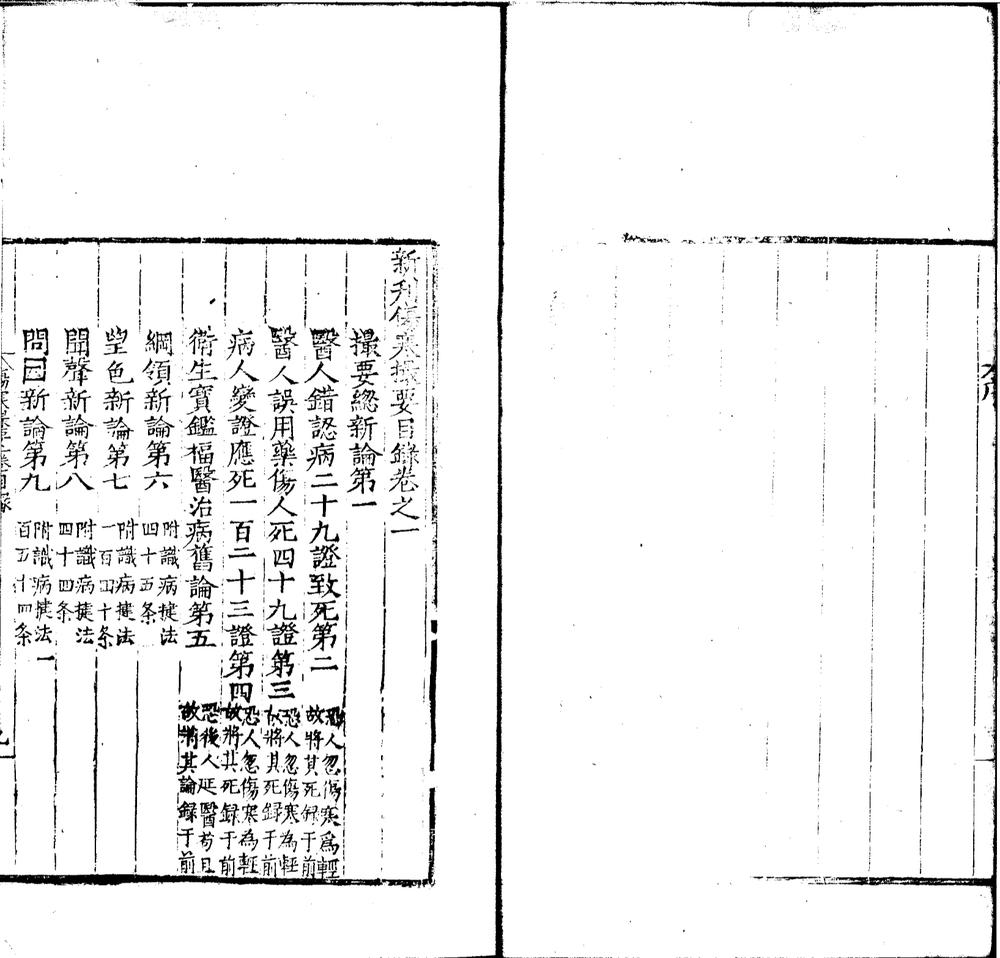 新刊傷寒撮要目錄卷之一
撮要總新論第一
醫人錯認病二十九證致死第二
恐人忽傷寒爲輕
故將其死録于前
醫人誤用藥傷人死四十九證第三
恐人忽傷寒為輕
故將其死録于前
病人變證應死一百二十三證第四
恐人忽傷寒為輕
故將其死録于前
衛生寶鑑福醫治病舊論第五
恐後人延醫苟且
故將其論録于前
綱領新論第六
附識病捷法
四十五条
望色新論第七
附識病捷法
一百四十条
聞聲新論第八
附識病捷法
四十四条
問因新論第九
附識病捷法一
百五十四条